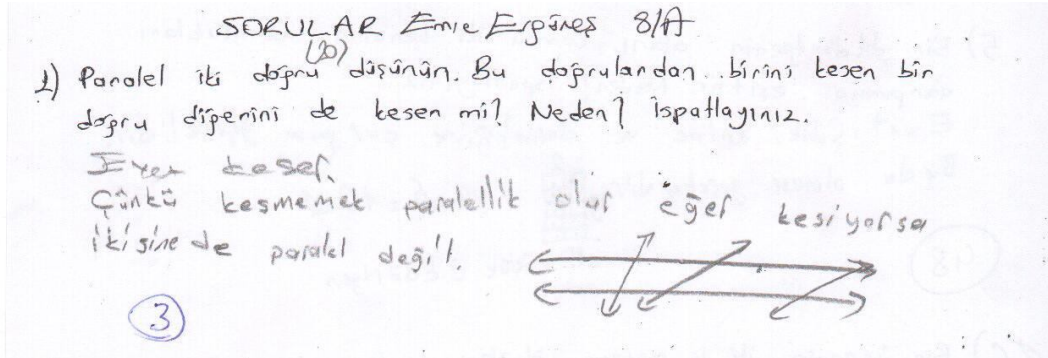 SORULAR Emre Ergüneş 8/A
(20)
1) Paralel iki doğru düşünün. Bu doğrulardan birini kesen bir
doğru diğerini de keser mi? Neden? İspatlayınız.
Evet keser.
Çünkü kesmemek paralellik olur eğer kesiyorsa
ikisine de paralel değil.
3